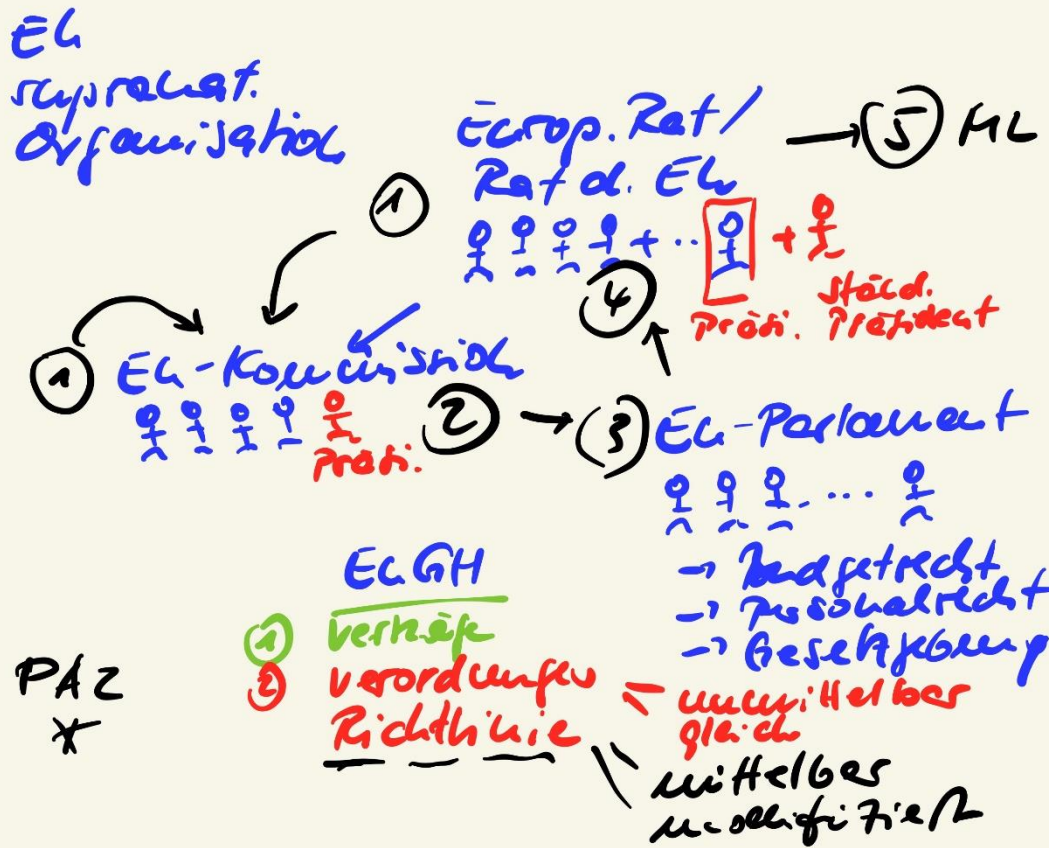 EU
supranat.
Organisation
Europ. Rat /
Rat d. EU
→ 5 ML
1
+ ... +
4
Präsi.
ständ.
Präsident
1
EU-Kommission
Präsi.
2 → 3
EU-Parlament
...
→ Budgetrecht
→ Personalrecht
→ Gesetzgebung
EuGH
1 Verträge
2 Verordnungen
Richtlinie
unmittelbar
gleich
mittelbar
modifiziert
PAZ
*